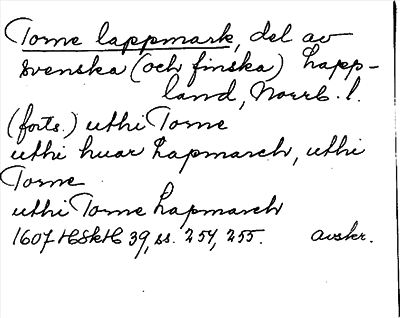 Torne lappmark, del av
svenska (och finska) Lapp-
land, Norrb. l.
(forts.) uthi Torne
uthi huar Lapmarch, uthi
Torne
uthi Torne Lapmarch
1607 HSkH 39, ss. 254, 255. avskr.